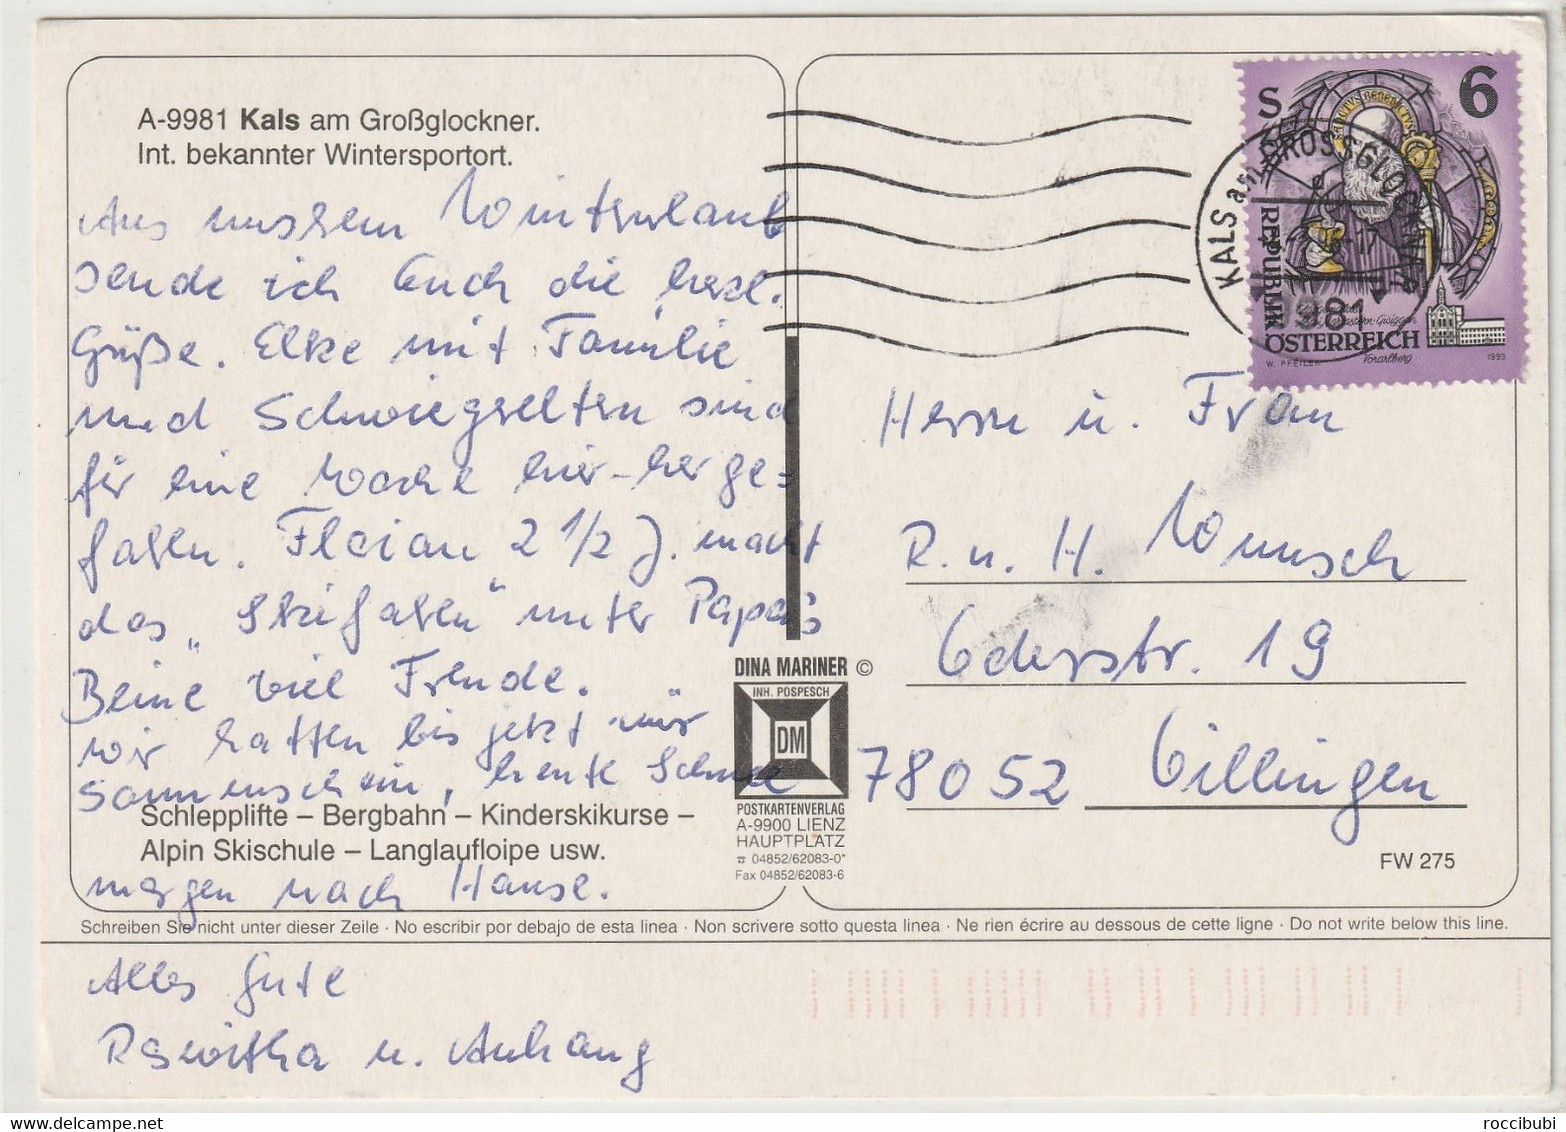 A-9981 Kals am Großglockner.
Int. bekannter Wintersportort.
Aus unserem Winterurlaub
sende ich Euch die herzl.
Grüße. Elke mit Familie
und Schwiegereltern sind
für eine Woche hier-herge=
fahren. Florian 2 1/2 J. macht
das „Skifahren" unter Papa's
Beine viel Freude.
Wir hatten bis jetzt nur
Sonnenschein, heute Schnee
Schlepplifte – Bergbahn – Kinderskikurse –
Alpin Skischule – Langlaufloipe usw.
morgen nach Hause.
Schreiben Sie nicht unter dieser Zeile · No escribir por debajo de esta linea · Non scrivere sotto questa linea · Ne rien écrire au dessous de cette ligne · Do not write below this line.
Alles Gute
Roswitha u. Anhang
DINA MARINER ©
INH. POSPESCH
DM
POSTKARTENVERLAG
A-9900 LIENZ
HAUPTPLATZ
☎ 04852/62083-0*
Fax 04852/62083-6
S 6
SANCTVS BENEDICTVS
REPUBLIK
ÖSTERREICH
Vorarlberg
W. PFEILER
1993
KALS am GROSSGLOCKNER
9981
Herrn u. Frau
R. u. H. Wunsch
Ederstr. 19
78052 Villingen
FW 275
roccibubi